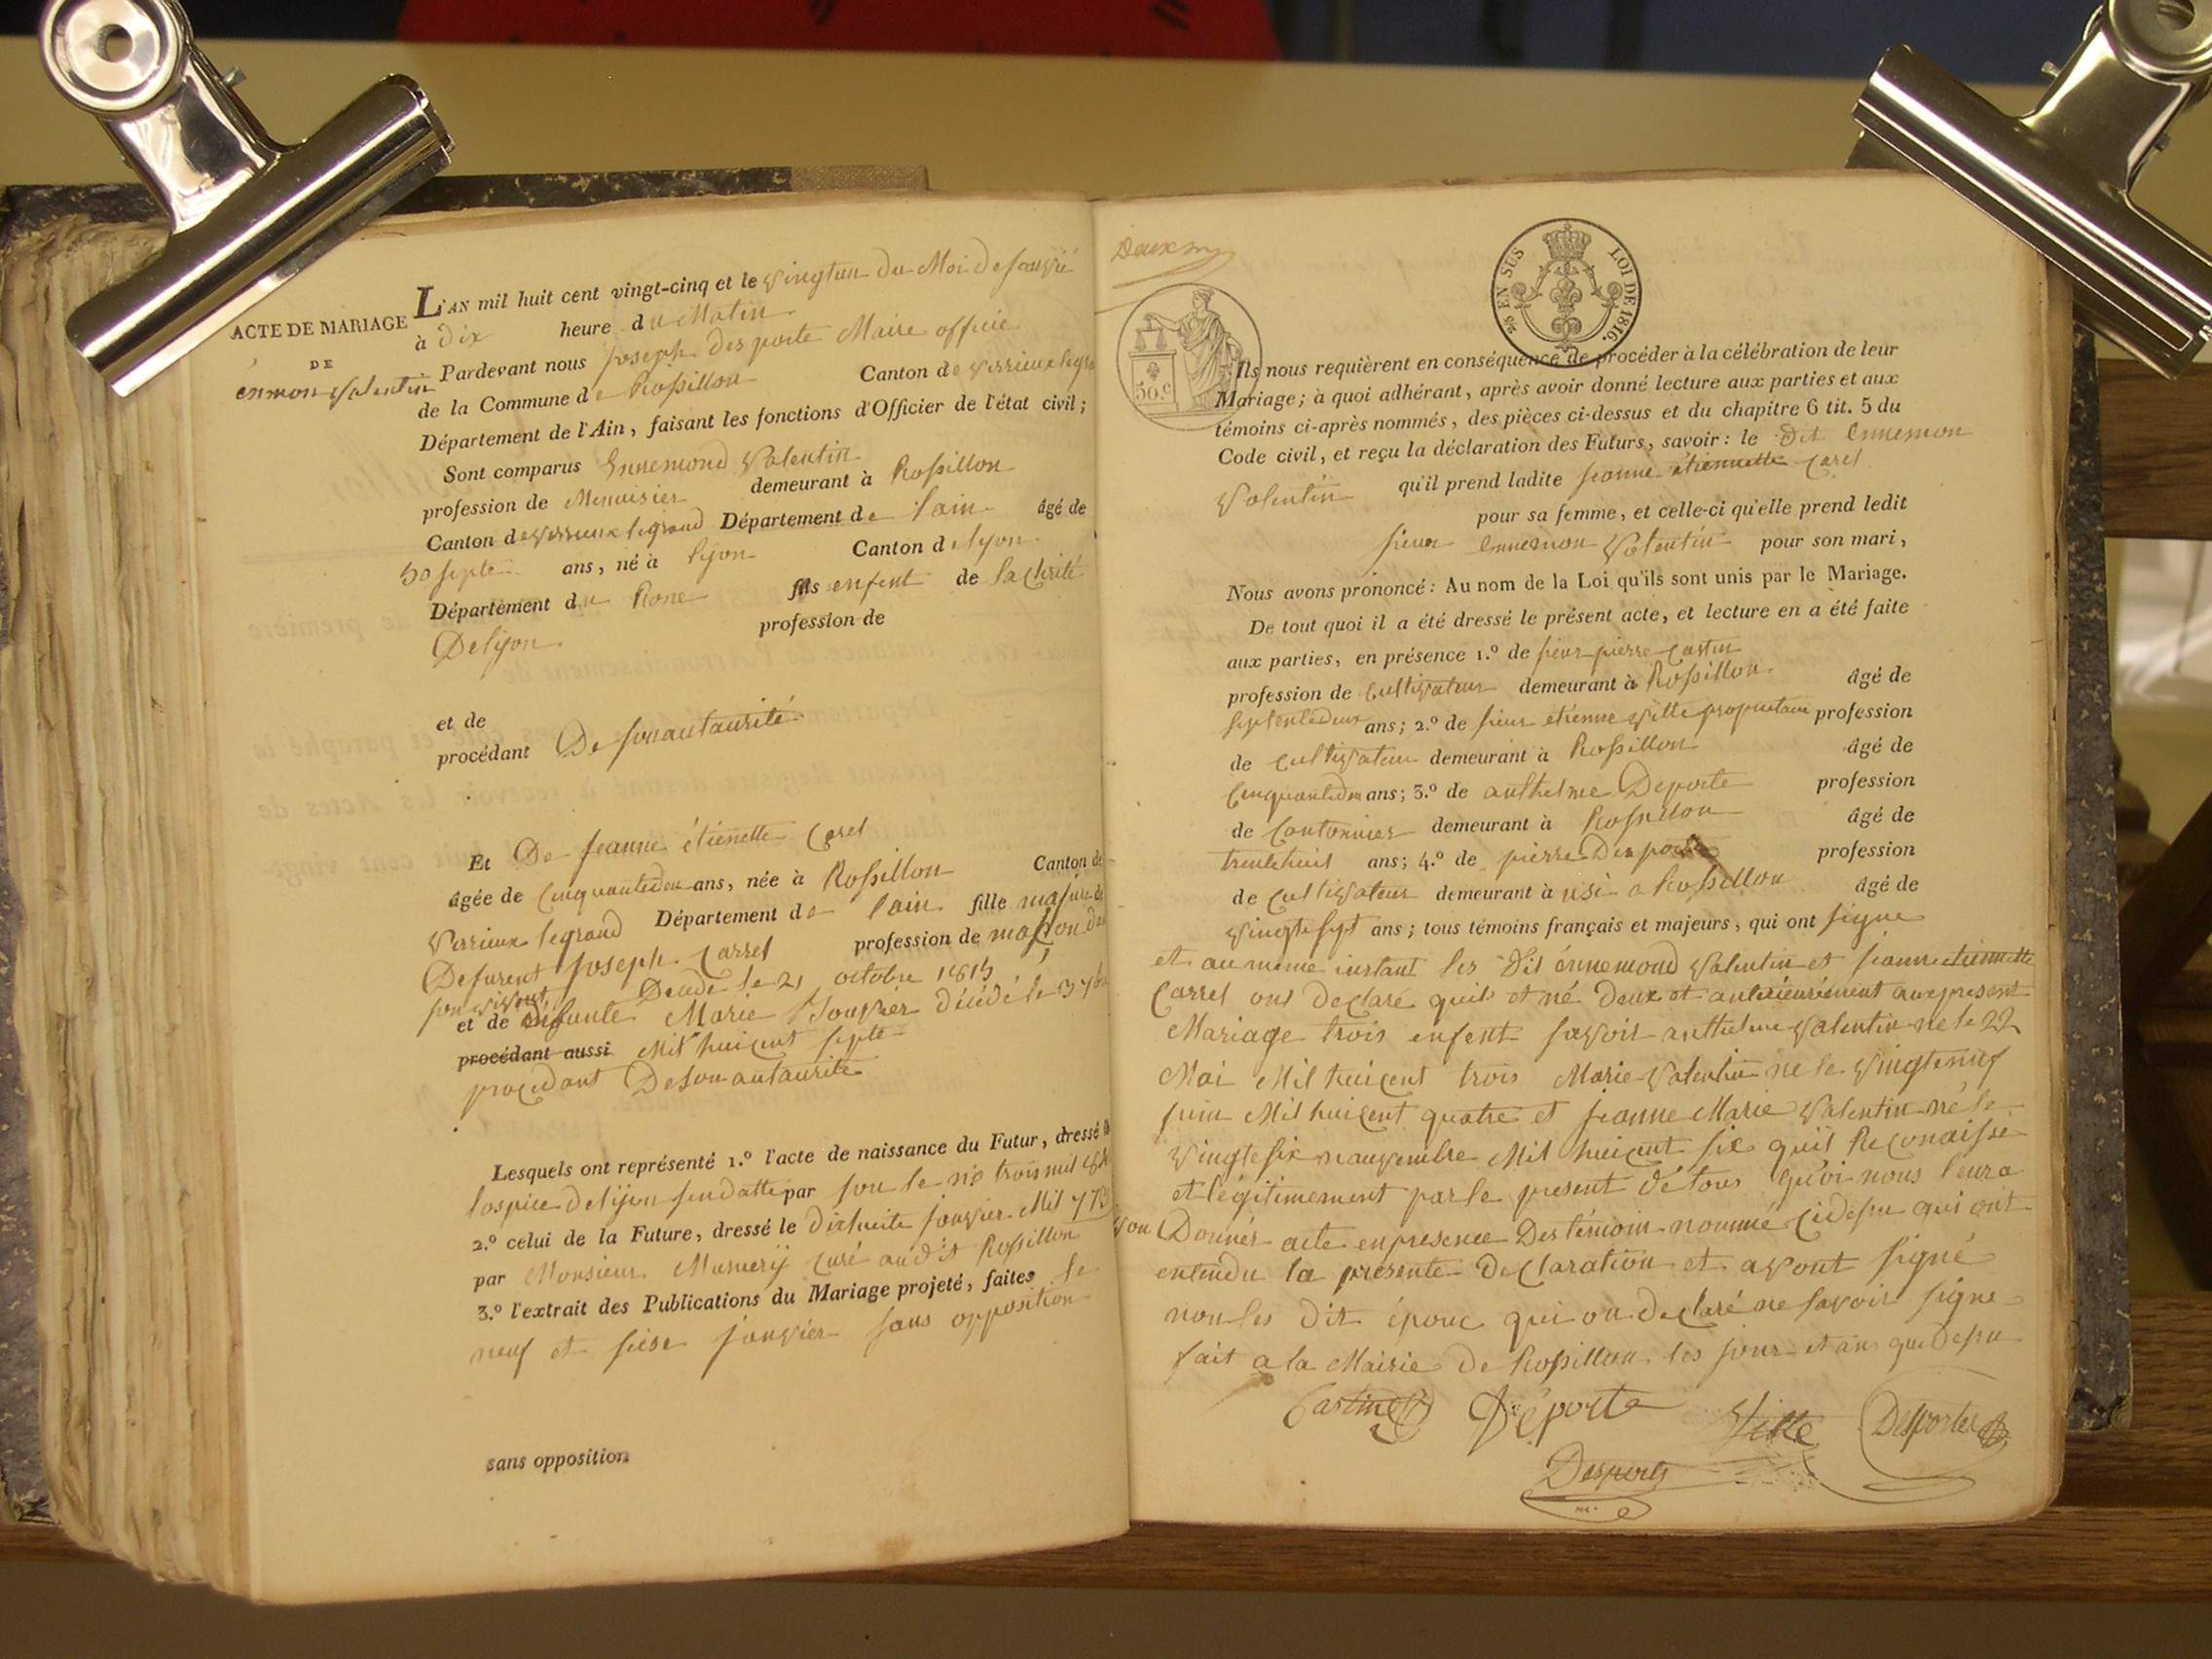 ACTE DE MARIAGE
DE
énmon Valentin
L'AN mil huit cent vingt-cinq et le vingtun du Moi de Janvié
à dix heure du Matin
Pardevant nous Joseph Desporte Maire officié
de la Commune de Rossillon Canton de virrieux legra
Département de l'Ain, faisant les fonctions d'Officier de l'état civil;
Sont comparus Ennemond Valentin
profession de Menuisier demeurant à Rossillon
Canton de virrieux legrand Département de l'ain âgé de
50 septe ans, né à lyon Canton de lyon
Département du Rone fils enfent de la Chrité
De lyon profession de
et de
procédant De son autaurité
Et De Jeanne étienette Carel
âgée de Cinquantedeu ans, née à Rossillon Canton de
Virrieux legrand Département de l'ain fille majure de
Defurent Joseph Carrel profession de maçon
Décédé le 21 octobre 1815
et de défunte Marie Jouvier décédé le 3
procédant aussi Mil huicent septe
procédant De son autaurité
Lesquels ont représenté 1.º l'acte de naissance du Futur, dressé
lospice de lyon sendatte par sou le no trois mil
2.º celui de la Future, dressé le Dixhuite janvier Mil 77
par Monsieur Murnerÿ Curé audit Rossillon
3.º l'extrait des Publications du Mariage projeté, faites le
neuf et seise janvier sans opposition
sans opposition
Deux
EN SUS LOI DE 1816.
50.c
Ils nous requièrent en conséquence de procéder à la célébration de leur
Mariage; à quoi adhérant, après avoir donné lecture aux parties et aux
témoins ci-après nommés, des pièces ci-dessus et du chapitre 6 tit. 5 du
Code civil, et reçu la déclaration des Futurs, savoir: le dit Ennemon
Valentin qu'il prend ladite Jeanne étiennette Carel
pour sa femme, et celle-ci qu'elle prend ledit
sieur Ennemon Valentin pour son mari,
Nous avons prononcé: Au nom de la Loi qu'ils sont unis par le Mariage.
De tout quoi il a été dressé le présent acte, et lecture en a été faite
aux parties, en présence 1.º de sieur pierre Castin
profession de Cultivateur demeurant à Rossillon âgé de
septentedeux ans; 2.º de sieur étienne Ville propriétaire profession
de Cultivateur demeurant à Rossillon âgé de
Cinquantedeu ans; 3.º de anthelme Deporte profession
de Cantonnier demeurant à Rossillon âgé de
trentehuit ans; 4.º de pierre Desporte profession
de Cultivateur demeurant à usi a Rossillon âgé de
vingtesept ans; tous témoins français et majeurs, qui ont signe
et au meme instant les dit énnemond Valentin et Jeanne étiennette
Carrel ont declaré quil et né deux et antérieurement aux present
Mariage trois enfent savoir anthelme Valentin né le 22
Mai Mil huicent trois Marie Valentin ne le vingteneuf
juin Mil huicent quatre et Jeanne Marie Valentin né le
vingtesix nauvembre Mil huicent six quil Reconaisse
et légitimement par le present de tous quoi nous leur a
von Donnés acte en presence Des témoin nommé Cidessu qui ont
entendu la présente Declaration et avont signé
non les dit épouc qui on declaré ne savoir signe
fait a la Mairie de Rossillon les jour et an que dessu
Castin Déporte Ville Desporte
Desporte